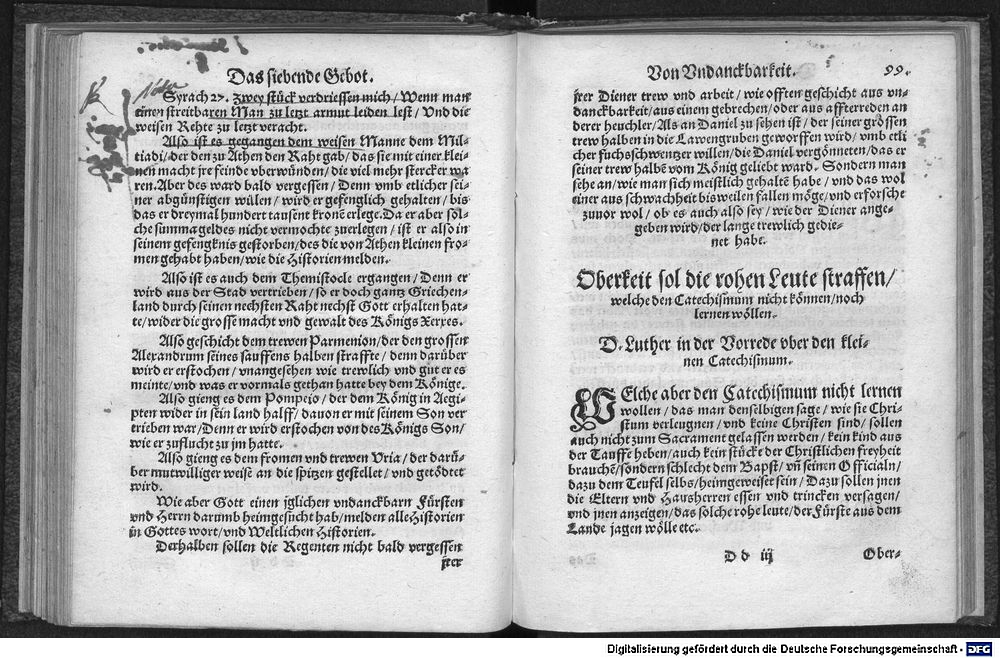 Das siebende Gebot.
Syrach 27. zwey stück verdriessen mich / Wenn man
einen streitbaren Man zu letzt armut leiden lest / Vnd die
weisen Rehte zu letzt veracht.
Also ist es gegangen dem weisen Manne dem Mil-
tiadi / der den zu Athen den Raht gab / das sie mit einer klei-
nen macht jre feinde vberwünden / die viel mehr stercker wa
ren. Aber des ward bald vergessen / Denn vmb etlicher sei-
ner abgünstigen willen / wird er gefenglich gehalten / bis
das er dreymal hundert tausent kronē erlege. Da er aber sol-
che summa geldes nicht vermochte zuerlegen / ist er also in
seinem gefengknis gestorben / des die von Athen kleinen fro-
men gehabt haben / wie die Historien melden.
Also ist es auch dem Themistocle ergangen / Denn er
wird aus der Stad vertrieben / so er doch gantz Griechen-
land durch seinen nechsten Raht nechst Gott erhalten hat-
te / wider die grosse macht vnd gewalt des Königs Xerxes.
Also geschicht dem trewen Parmenion / der den grossen
Alexandrum seines sauffens halben straffte / denn darüber
wird er erstochen / vnangesehen wie trewlich vnd gut er es
meinte / vnd was er vormals gethan hatte bey dem Könige.
Also gieng es dem Pompeio / der dem König in Aegi-
pten wider in sein land halff / dauon er mit seinem Son ver
trieben war / Denn er wird erstochen von des Königs Son /
wie er zuflucht zu jm hatte.
Also gieng es dem fromen vnd trewen Vria / der darü-
ber mutwilliger weise an die spitzen gestellet / vnd getödtet
wird.
Wie aber Gott einen jglichen vndanckbarn Fürsten
vnd Herrn darumb heimgesucht hab / melden alle Historien
in Gottes wort / vnd Weltlichen Historien.
Derhalben sollen die Regenten nicht bald vergessen
jrer
Von Vndanckbarkeit. 99.
jrer Diener trew vnd arbeit / wie offten geschicht aus vn-
danckbarkeit / aus einem gebrechen / oder aus affterreden an
derer heuchler / Als an Daniel zu sehen ist / der seiner grossen
trew halben in die Lawengruben geworffen wird / vmb etli
cher fuchsschwentzer willen / die Daniel vergönneten / das er
seiner trew halbē vom König geliebt ward. Sondern man
sehe an / wie man sich meistlich gehaltē habe / vnd das wol
einer aus schwachheit bisweilen fallen möge / vnd erforsche
zuuor wol / ob es auch also sey / wie der Diener ange-
geben wird / der lange trewlich gedie-
net habe.
Oberkeit sol die rohen Leute straffen /
welche den Catechismum nicht können / noch
lernen wöllen.
D. Luther in der Vorrede vber den klei-
nen Catechismum.
WElche aber den Catechismum nicht lernen
wollen / das man denselbigen sage / wie sie Chri-
stum verleugnen / vnd keine Christen sind / sollen
auch nicht zum Sacrament gelassen werden / kein kind aus
der Tauffe heben / auch kein stücke der Christlichen freyheit
brauchē / sondern schlecht dem Bapst / vñ seinen Officialn /
dazu dem Teufel selbs / heimgeweiset sein / Dazu sollen jnen
die Eltern vnd Hausherren essen vnd trincken versagen /
vnd jnen anzeigen / das solche rohe leute / der Fürste aus dem
Lande jagen wölle etc.
D d iij Ober-
Digitalisierung gefördert durch die Deutsche Forschungsgemeinschaft - DFG